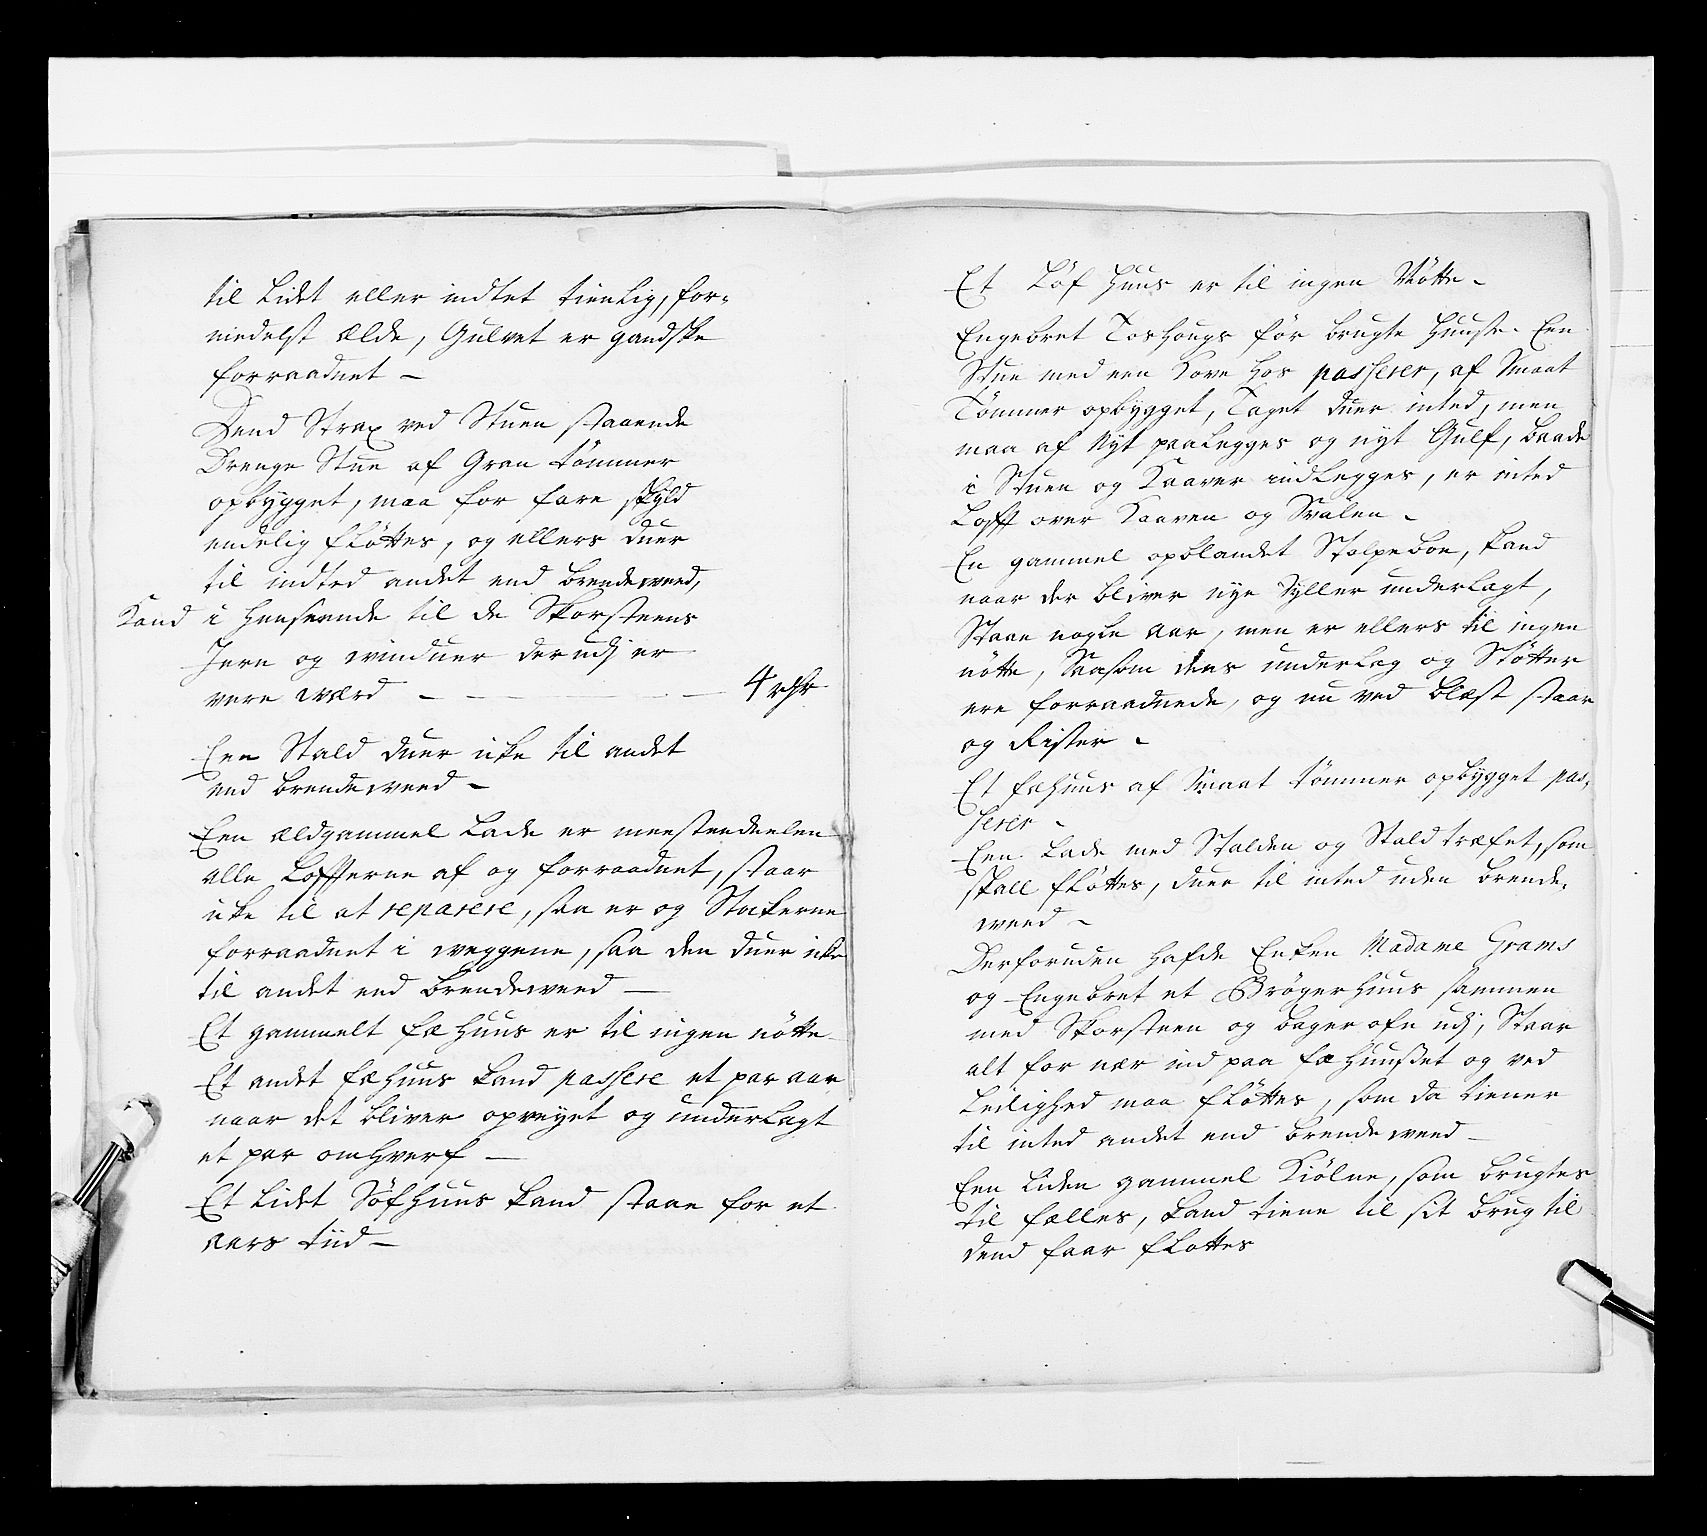 til Lidet eller indtet tienlig, for-
niedelst Ælde, Gulvet er gandske
forraadnet –
Dend Strax ved Stuen staaende
Drenge Stue af Gran tømmer
opbygget, maa for fare skyld
endelig fløttes, og ellers duer
til indted andet end brendeweed,
Kand i henseende til de Skorsteens
Jern og winduer derudj er
vere værd – – – 4 rdr
Een Stald duer icke til andet
end brendeweed –
Een ældgammel Lade er meestendeelen
alle Loffterne af og forraadnet, staar
icke til at reparere, saa er og Stockerne
forraadnet i weggene, saa den duer icke
til andet end brendeweed –
Et gammelt fæhuus er til ingen nötte
Et andet fæhuus kand passere et par aar
naar det bliver opveyet og underlagt
et par omhverf –
Et lidet Søfhuus kand staae for et
aars tiid –
Et Löf huus er til ingen Nötte –
Engebret Toshougs før brugte huuse. Een
Stue med een Kove hos passerer, af Smaat
Tömmer opbygget, Taget duer inted, men
maa af Nyt paalegges og nyt Gulf, baade
i Stuen og Kaaven indlegges, er inted
Lofft over Kaaven og Svalen –
En gammel opblandet Stolpeboe, kand
naar der bliver nye Syller underlagt,
Staae nogle aar, men er ellers til ingen
nötte, Saasom dens underlag og Støtter
ere forraadnede, og nu ved blæst staar
og Rister –
Et fæhuus af Smaat tömmer opbygget pas-
serer –
Een Lade med Stalden og Staldtræfet, som
skall fløttes, duer til inted uden brende-
weed –
Derforuden hafde Enken Madame Grams
og Engebret et Brögerhuus sammen
med Skorsteen og bager ofn udj, Staar
alt for nær ind paa fæhuuset og ved
Leilighed maa fløttes, som da tiener
til inted andet end brendeweed –
Een liden gammel Kiölne, som brugtes
til fælles, kand tiene til sit brug til
dend faar fløttes